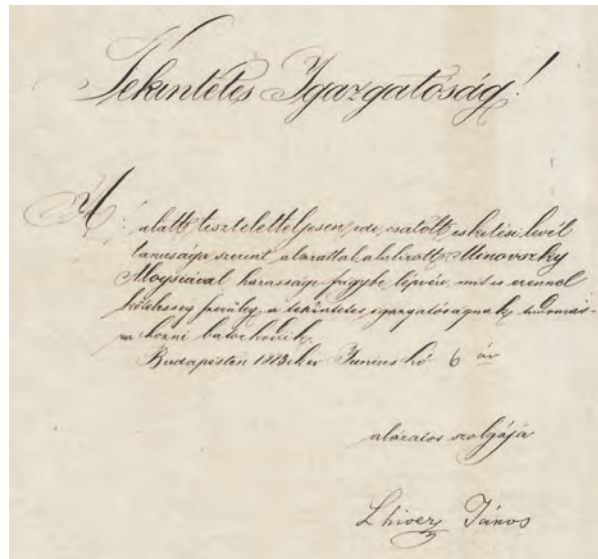 Tekintetes Igazgatóság!
A ⁒ alatt tiszteletteljesen ide csatolt esketési levél
tanusága szerint alázattal alulirott Minovszky
Aloysiával házassági frigybe lépvén, mit is ezennel
kötelesség szerüleg a tekintetes igazgatóságnak tudomás-
ra hozni bátorkodik.
Budapesten Junius hó 6 án
alázatos szolgája
János